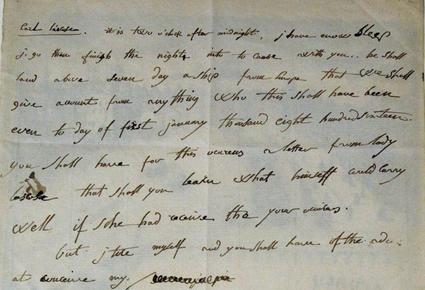 Cout Lascases. It is two o'clock after midnight, j have enow sleep
j go then finish the night into to cause with you... he shall
land above seven day a ship from Europe that we shall
give account from anything who this shall have been
even to day of first january thousand eight hundred sixteen.
you shall have for this ocurens a letter from lady
that shall you learn what himself could carry
well if she had occurens the your
but j tire myself and you shall have of the ado:
at my